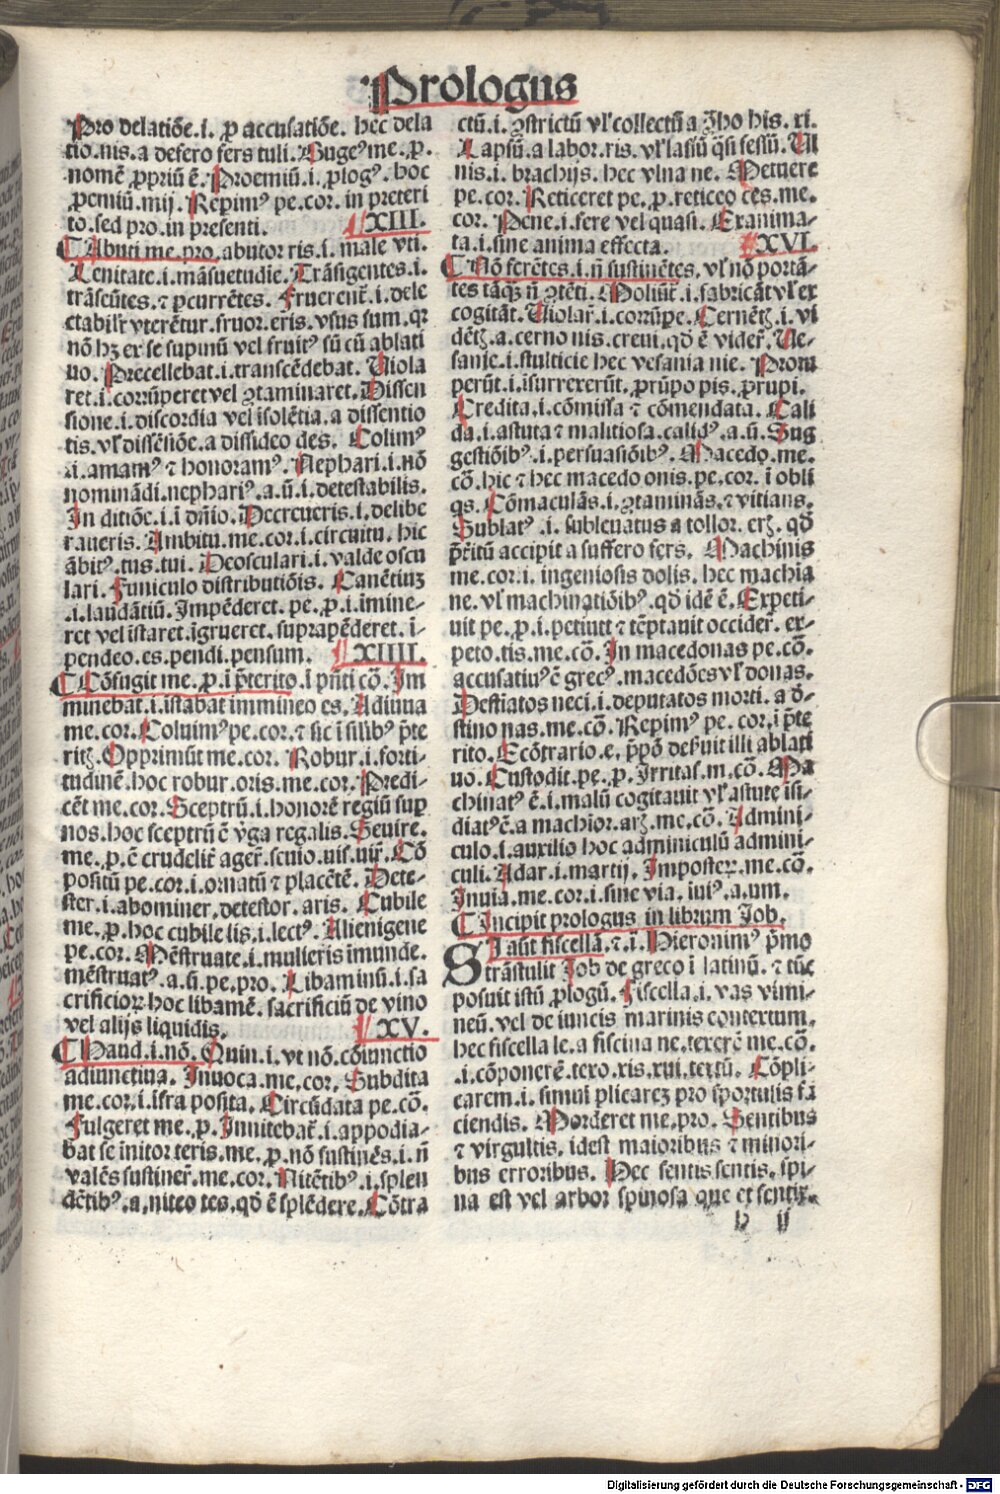 Prologus
Pro delatiōe.i. ꝓ accusatiōe. hec dela
tio.nis.a defero fers tuli. Bugeꝰ me.ꝓ.
nomē ꝓpriū ē. Proemiū.i.ꝓlogꝰ. hoc
ꝓemiū.mij. Repimꝰ pe.cor. in preteri
to.sed pro.in presenti. XIII.
Abuti me.pro.abutor ris.i.male vti.
Lenitate.i.māsuetudie. Trāsigentes.i.
trāseūtes.⁊ ꝑcurrētes. Fruerent᷑.i.dele
ctabil᷑r vterētur.fruor.eris.vsus sum.qꝛ
nō hꝫ ex se supinū vel fruitꝰ sū cū ablati
uo. Precellebat.i.transcēdebat. Viola
ret.i.corrūperet vel ꝯtaminaret. Dissen
sione.i.discordia vel isolētia.a dissentio
tis.vl᷑ dissēsiōe.a dissideo des. Colimꝰ
.i.amamꝰ ⁊ honoramꝰ. Nephari.i.nō
nominādi.nephariꝰ.a.ū.i.detestabilis.
In ditiōe.i.i dn̄io. Decreueris.i.delibe
raueris. Ambitu.me.cor.i.circuitu. hic
ābitꝰ.tus.tui. Deosculari.i.valde oscu
lari. Funiculo distributiōis. Canētiuꝫ
.i.laudātiū. Impēderet.pe.ꝓ.i.imine-
ret vel istaret.īgrueret.suprapēderet.ī-
pendeo.es.pendi.pensum. XIIII.
Cōfugit me.ꝓ.i p̄terito.i pn̄ti cō. Im
minebat.i.istabat immineo es. Adiuua
me.cor. Coluimꝰ pe.cor.⁊ sic i sil᷑ibꝰ p̄te
ritꝭ. Opprimūt me.cor. Robur.i.forti-
tudinē.hoc robur.oris.me.cor. Predi-
cēt me.cor. Sceptrū.i.honorē regiū suꝑ
nos.hoc sceptrū ē v̓ga regalis. Seuire.
me.ꝓ.ē crudelit᷑ ager᷑.seuio.uis.uir᷑. Cō
positū pe.cor.i.ornatū ⁊ placētē. Dete-
ster.i.abominer.detestor.aris. Cubile
me.ꝓ.hoc cubile lis.i.lectꝰ. Alienigene
pe.cor. Mēstruate.i.mulieris imunde.
mēstruatꝰ.a.ū.pe.pro. Libaminū.i.sa
crificioꝝ hoc libamē.sacrificiū de vino
vel alijs liquidis. XV.
Haud.i.nō. Quin.i.vt nō.cōiunctio
adiunctiua. Inuoca.me.cor. Subdita
me.cor.i.ifra posita. Circūdata pe.cō.
Fulgeret me.ꝓ. Innitebat᷑.i.appodia-
bat se initor teris.me.ꝓ.nō sustinēs.i.n̄
valēs sustiner᷑.me.cor. Nitētibꝰ.i.splen
dētibꝰ.a.niteo tes.qd̓ ē splēdere. Cōtra
ctū.i.ꝯstrictū vl᷑ collectū a ꝯ̄ho his.xi.
Lapsū.a labor.ris.vl᷑ lassū q̄si fessū. Ul
nis.i.brachijs.hec vlna ne. Metuere
pe.cor. Reticeret pe.ꝓ.reticeo ces.me.
cor. Pene.i.fere vel quasi. Exanima-
ta.i.sine anima effecta. XVI.
Nō ferētes.i.n̄ sustinētes.vl᷑ nō portā-
tes tāqꝫ n̄ ꝯtēti. Moliūt᷑.i.fabricāt vl᷑ ex
cogitāt. Violar᷑.i.corrūpe. Cernētꝭ.i.vi
dētꝭ.a.cerno nis.creui.qd̓ ē vider᷑. Ue-
sanie.i.stulticie hec vesania nie. Proru
perūt.i.isurrexerūt.ꝓrūpo pis.ꝓrupi.
Credita.i.cōmissa ⁊ cōmendata. Cali
da.i.astuta ⁊ malitiosa.calidꝰ.a.ū. Sug
gestiōibꝰ.i.persuasiōibꝰ. Macedo.me.
cō.hic ⁊ hec macedo onis.pe.cor.i obli
qs. Cōmaculās.i.ꝯtaminās.⁊ vitians.
Sublatꝰ.i.subleuatus a tollor.erꝭ.qd̓
p̄t᷑itū accipit a suffero fers. Machinis
me.cor.i.ingeniosis dolis.hec machia
ne.vl᷑ machinatiōibꝰ.qd̓ idē ē. Expeti-
uit pe.ꝓ.i.petiuit ⁊ tēptauit occider᷑.ex-
peto.tis.me.cō. In macedonas pe.cō.
accusatiuꝰ ē grecꝰ.macedōes vl᷑ donas.
Destiatos neci.i.deputatos morti.a d̓-
stino nas.me.cō. Repimꝰ pe.cor.i p̄te
rito. Ecōtrario.e.p̄pō deẜuit illi ablati
uo. Custodit.pe.ꝓ. Irritas.m.cō. Ma
chinatꝰ ē.i.malū cogitauit vl᷑ astute isi-
diatꝰ ē.a machior.arꝭ.me.cō. Admini-
culo.i.auxilio hoc adminiculū admini-
culi. Adar.i.martij. Imposteꝝ.me.cō.
Inuia.me.cor.i.sine via.iuiꝰ.a.um.
Incipit prologus in librum Job.
SI aūt fiscellā.⁊.i. Hieronimꝰ p̄mo
trāstulit Job de greco i latinū.⁊ tūc
posuit istū ꝓlogū. Fiscella.i.vas vimi-
neū.vel de iuncis marinis contextum.
hec fiscella le.a fiscina ne.texere me.cō.
.i.cōponere.texo.xis.xui.textū. Cōpli-
carem.i.simul plicareꝫ pro sportulis fa
ciendis. Morderet me.pro. Sentibus
⁊ virgultis.idest maioribus ⁊ minori-
bus erroribus. Hec sentis sentis.spi-
na est vel arbor spinosa que et sentix.
b ij
Digitalisierung gefördert durch die Deutsche Forschungsgemeinschaft - DFG